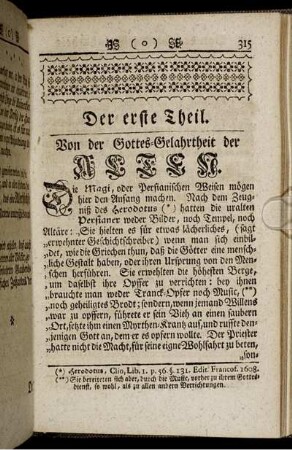 ( o ) 315
Der erste Theil.
Von der Gottes-Gelahrtheit der
ALTEN.
Die Magi, oder Persianischen Weisen mögen
hier den Anfang machen. Nach dem Zeug-
niß des Herodotus (*) hatten die uralten
Persianer weder Bilder, noch Tempel, noch
Altäre: „Sie hielten es für etwas lächerliches, (sagt
„erwehnter Geschichtschreiber) wenn man sich einbil-
„det, wie die Griechen thun, daß die Götter eine mensch-
„liche Gestalt haben, oder ihren Ursprung von den Men-
„schen herführen. Sie erwehlten die höhesten Berge,
„um daselbst ihre Opffer zu verrichten: bey ihnen
„brauchte man weder Tranck-Opfer noch Music, (**)
„noch geheiligtes Brodt; sondern, wenn jemand Willens
„war zu opffern, führete er sein Vieh an einen saubern
„Ort, setzte ihm einen Myrthen-Krantz auf, und ruffte den-
„jenigen Gott an, dem er es opfern wollte. Der Priester
„hatte nicht die Macht, für seine eigne Wohlfahrt zu beten,
„son-
(*) Herodotus, Clio, Lib. 1. p. 56. §. 131. Edit. Francof. 1608.
(**) Sie bereiteten sich aber, durch die Music, vorher zu ihrem Gottes-
dienst, so wohl, als zu allen andern Verrichtungen.